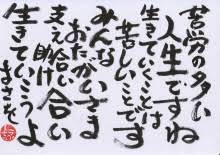 苦労の多い
人生ですね
生きていくことは
苦しいことです
みんな
おたがいさま
支え合い
助け合い
生きていこうよ
まさを